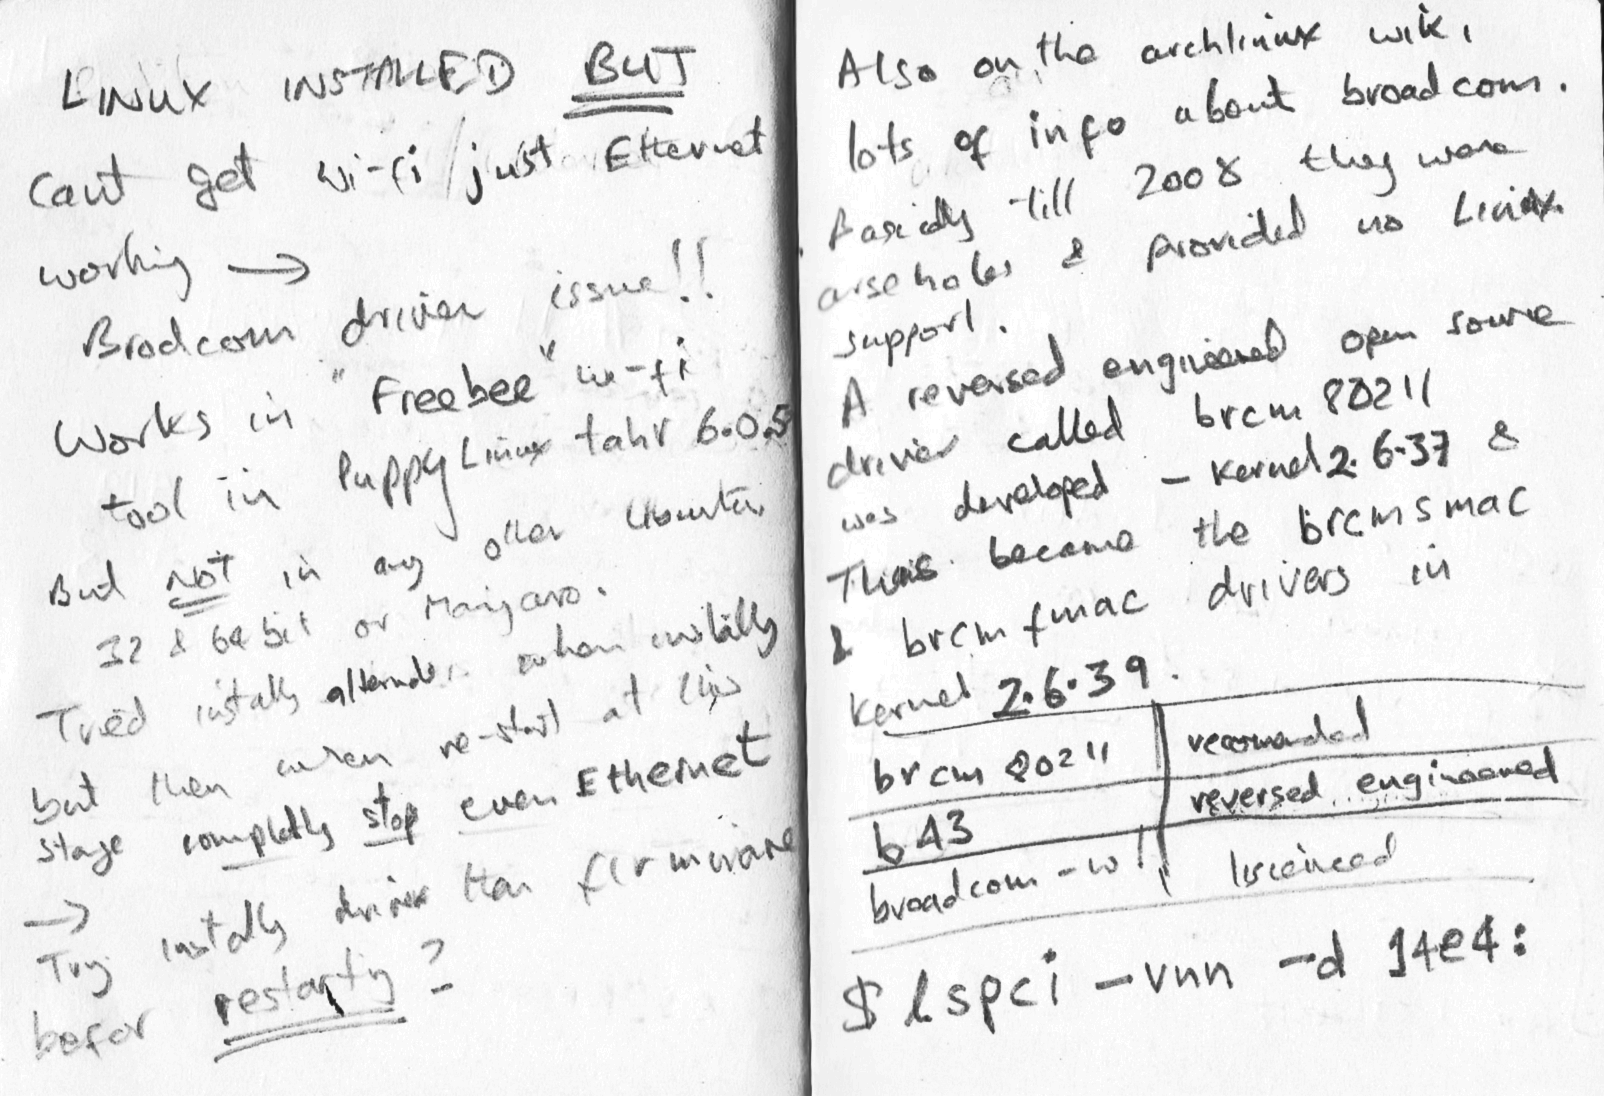 LINUX INSTALLED BUT
Cant get wi-fi / just Ethernet
working →
Brodcom driver issue!!
Works in "Freebee" wi-fi
tool in Puppy Linux tahr 6.0.5
But NOT in any other Ubuntu
32 & 64 bit or Manjaro.
Tried installg when initially
but then when re-start at
stage completly stop even Ethernet
→
Try installg driver then firmware
befor restartg?
Also on the archlinux wiki,
lots of info about broadcom.
Basically till 2008 they were
arseholes & provided no Linux
support.
A reversed engineered open source
driver called brcm 80211
was developed – kernel 2.6.37 &
This became the brcmsmac
& brcmfmac drivers in
kernel 2.6.39.
brcm 80211 | recomended
b43 | reversed engineered
broadcom-wl | liscenced
$ lspci -vnn -d 14e4: